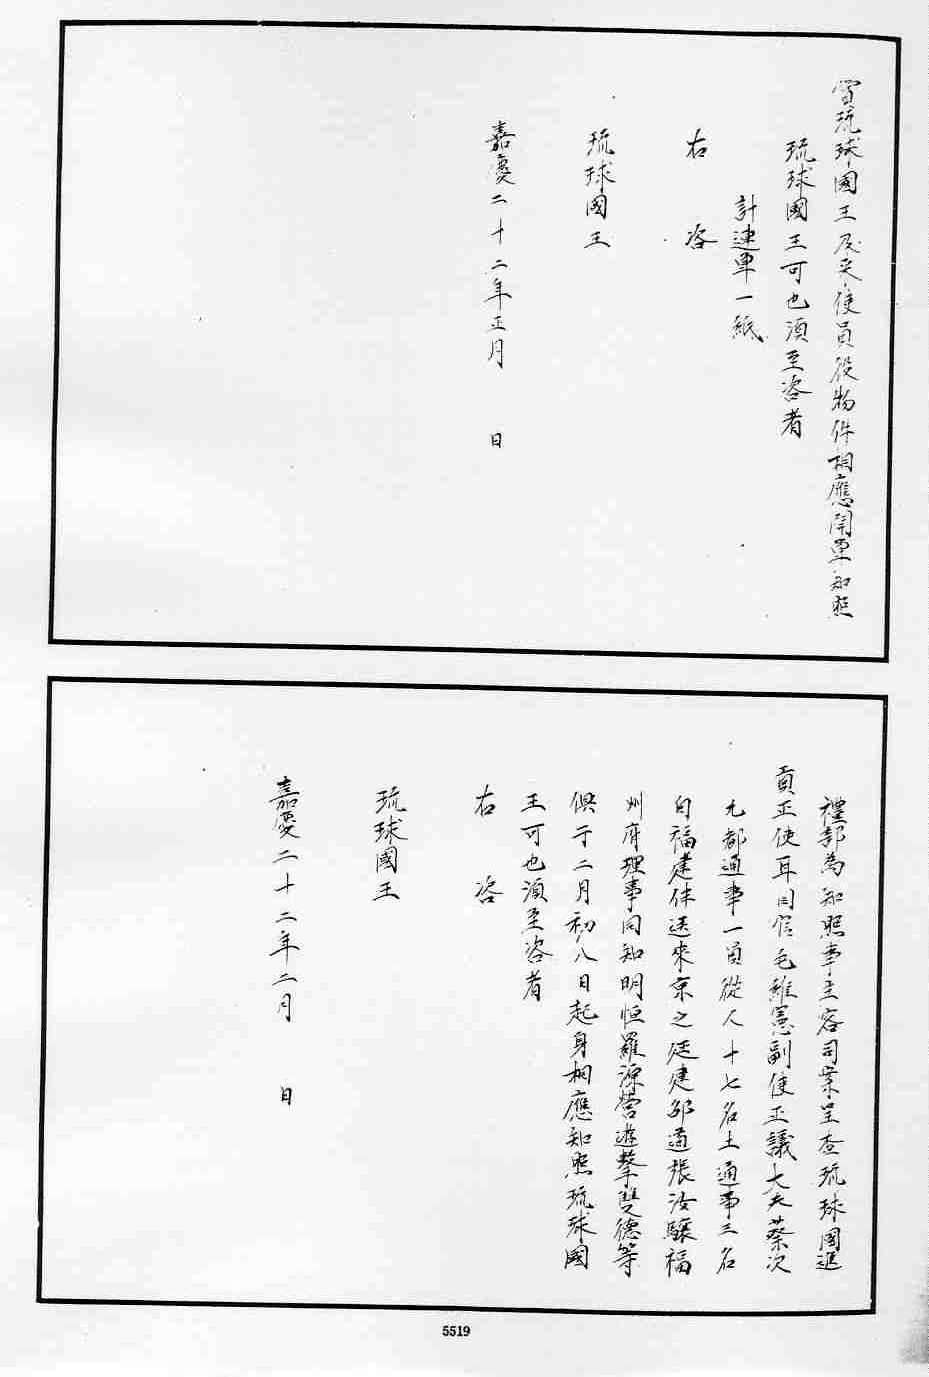 賞琉球國王及來使員役物件相應開單知照
琉球國王可也須至咨者
計連單一紙
右咨
琉球國王
嘉慶二十二年正月　日
禮部為知照事主客司案呈查琉球國進
貢正使耳目官毛維憲副使正議大夫蔡次
九都通事一員從人十七名土通事三名
自福建伴送來京之延建邵道張汝驤福
州府理事同知明恒羅源營遊擊雙德等
俱于二月初八日起身相應知照琉球國
王可也須至咨者
右咨
琉球國王
嘉慶二十二年二月　日
5519